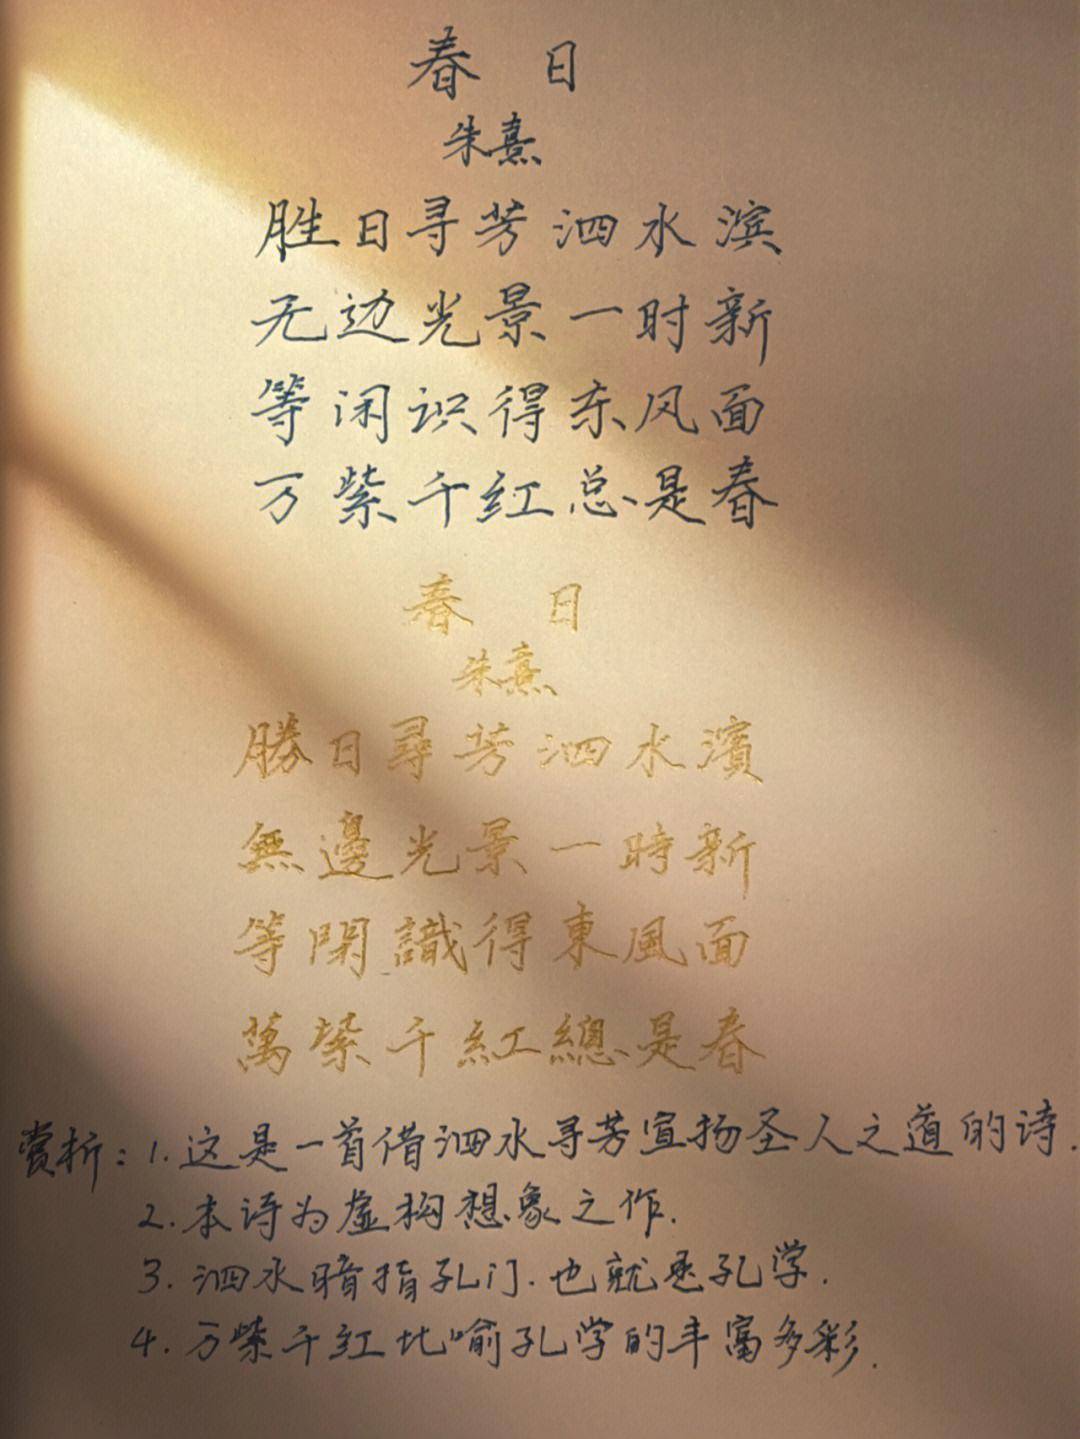 春日
朱熹
胜日寻芳泗水滨
无边光景一时新
等闲识得东风面
万紫千红总是春
春日
朱熹
勝日尋芳泗水濱
無邊光景一時新
等閑識得東風面
萬紫千紅總是春
赏析：1.这是一首借泗水寻芳宣扬圣人之道的诗.
2.本诗为虚构想象之作.
3.泗水暗指孔门.也就是孔学.
4.万紫千红比喻孔学的丰富多彩.